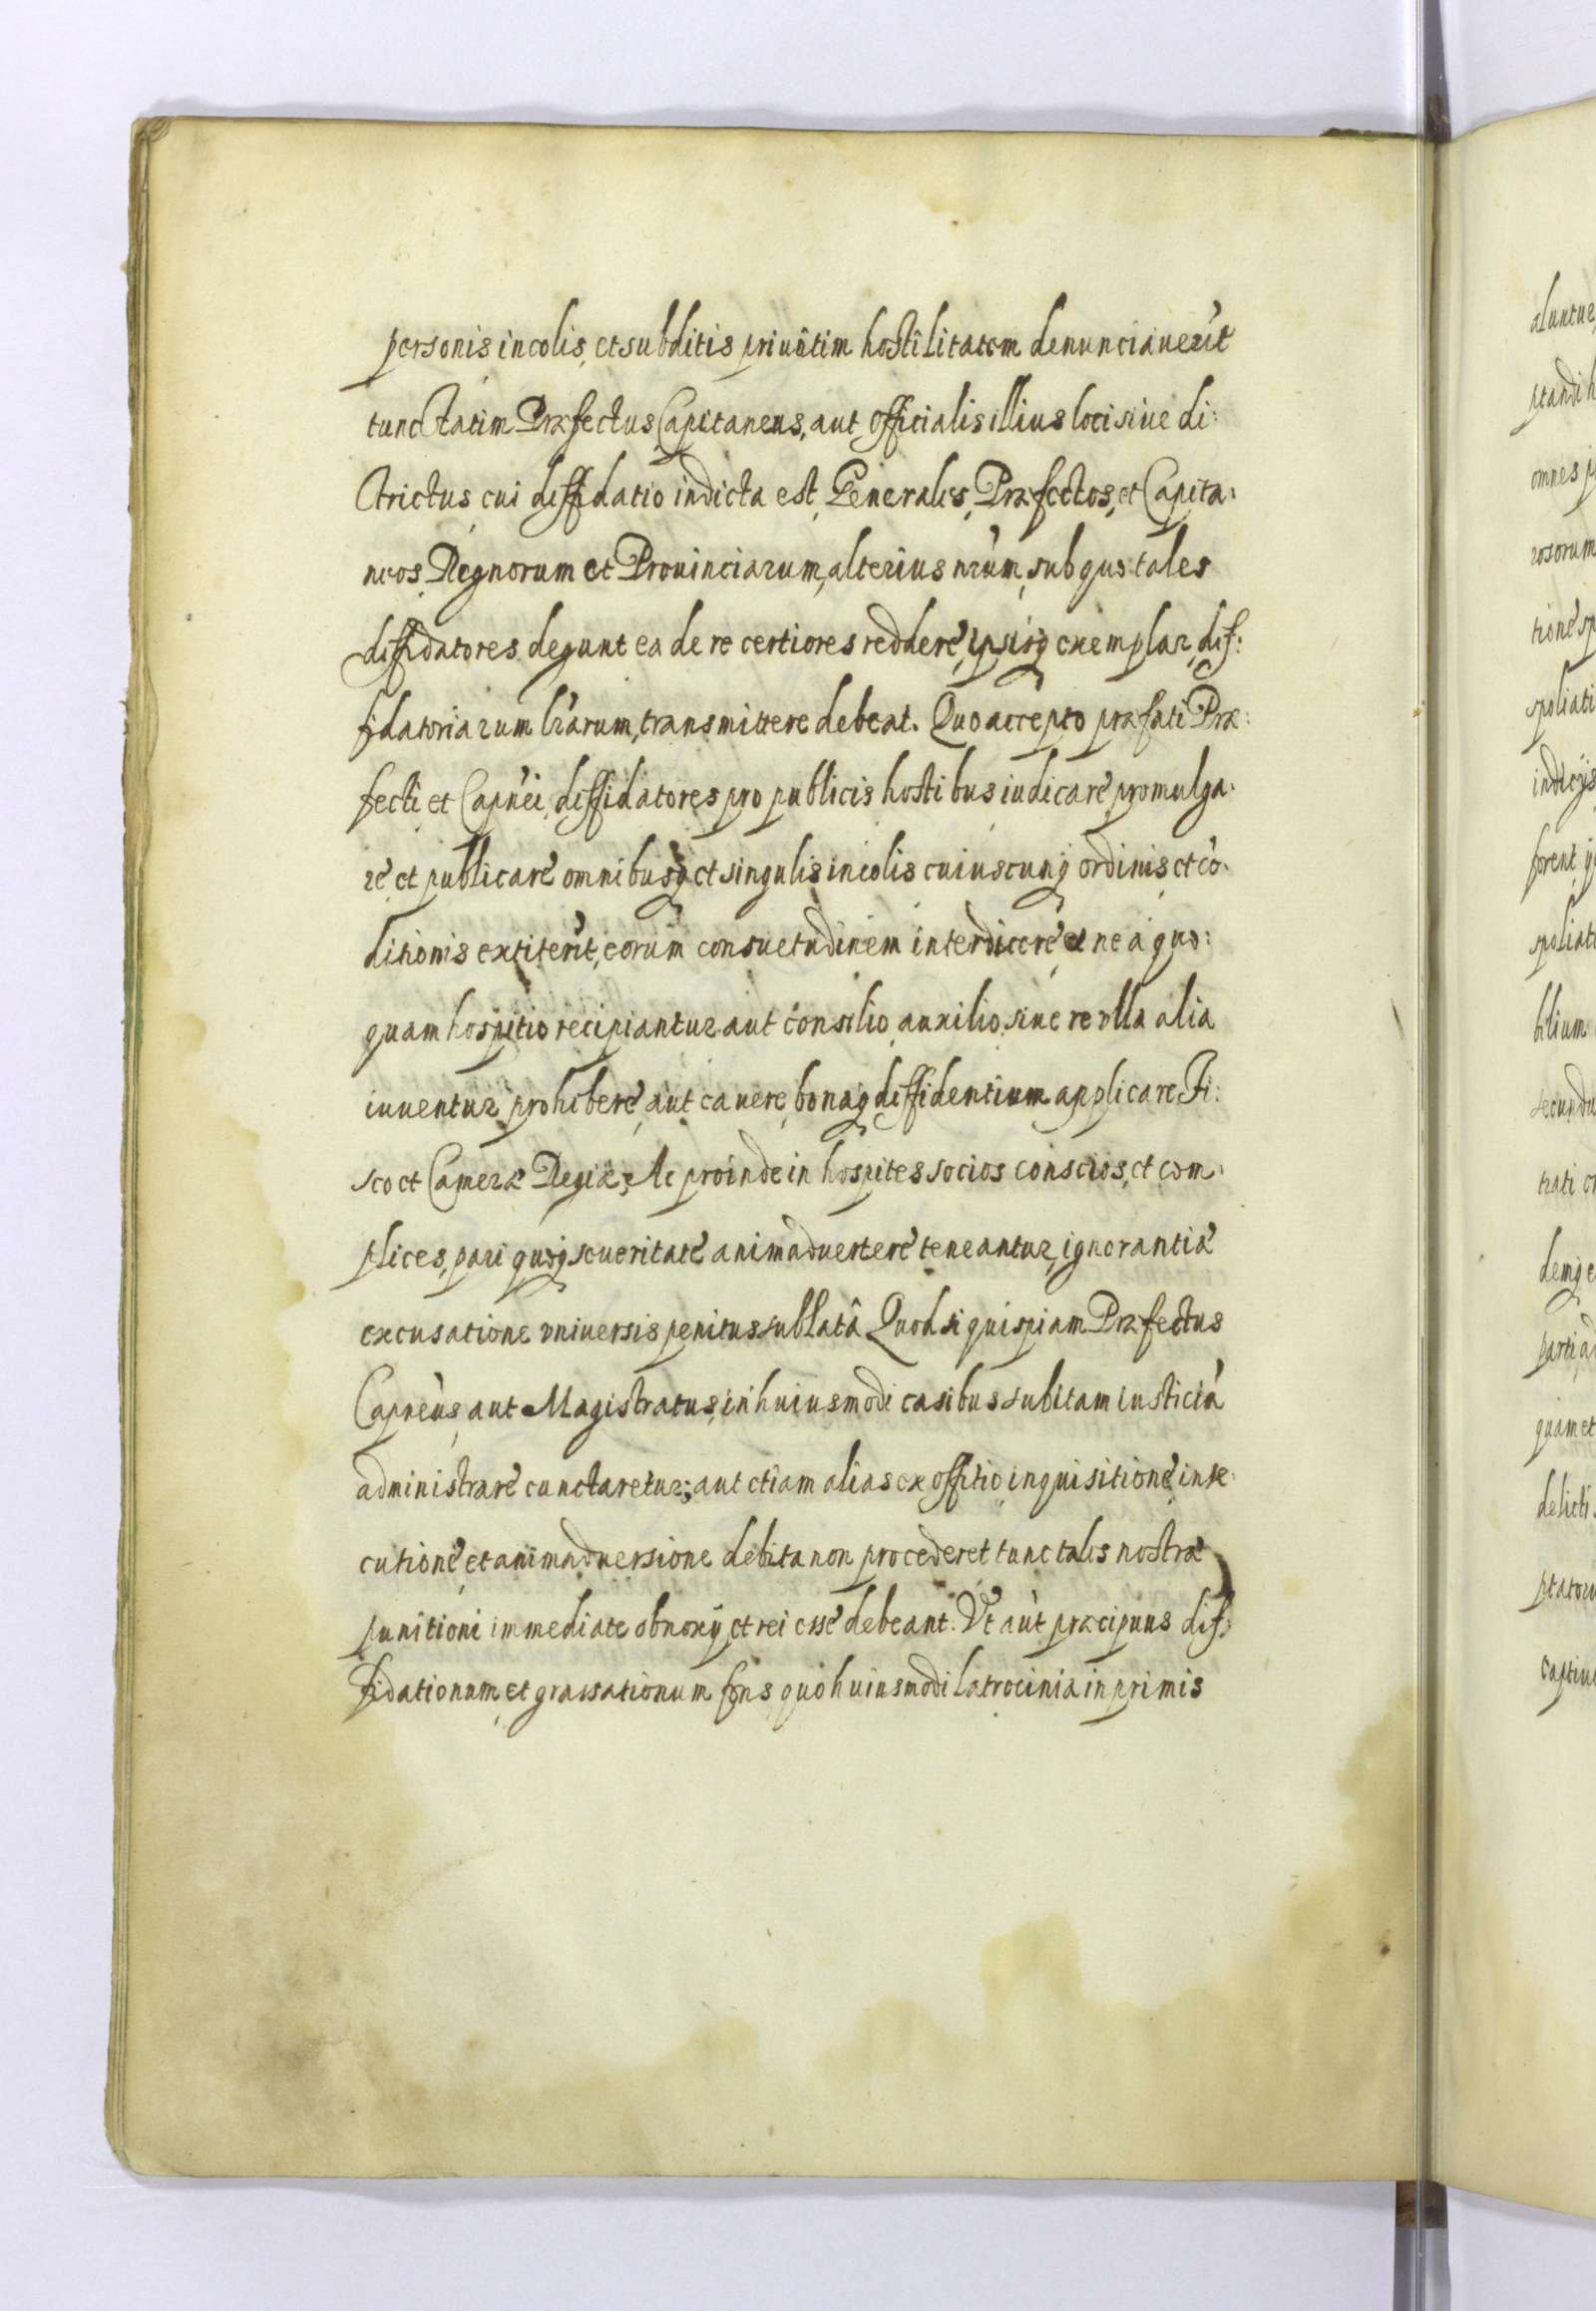 personis incolis, et subditis priuâtim hostîlitatem denunciauerũt
tunc statim Præfectus Capitaneus, aut officialis illius loci siue di:
strictus cui diffidatio indicta est, Generales, Præfectos, et Capita:
neos Regnorum et Prouinciarum, alterius nr̃um, sub quo tales
diffidatores degunt ea de re certiores reddere, ipsisq₃ exemplar, dif:
fidatoriarum lr̃arum, transmittere debeat. Quo accepto præfati Præ:
fecti et Capñei, diffidatores pro publicis hostibus iudicare, promulga:
re et publicare omnibusq₃ et singulis incolis cuiuscunq₃ ordinis et cõ:
ditionis extiterĩt, eorum consuetudinem interdicere et ne à quo:
quam hospitio recipiantur aut consilio, auxilio, siue re vlla alia
iuuentur prohibere, aut cauere, bonaq₃ diffidentium applicare Fi:
sco et Cameræ Regiæ, Ac proinde in hospites socios conscios, et com:
plices, pari quoq₃ seueritate animaduertere teneantur, ignorantiæ
excusatione vniuersis penitus sublatâ Quod si quispiam Præfectus
Capñeus, aut Magistratus, in huiusmodi casibus subitam iusticiã
administrare cunctaretur; aut etiam alias ex offitio inquisitione, inse:
cutione, et animaduersione debita non procederet tunc tales nostræ
punitioni immediate obnoxÿ, et rei esse debeant. Vt aũt præcipuus dif:
fidationum et grassationum fons quo huiusmodi latrocinia inprimis
aluntur
ptandi h
omnes p
rosorum
tione sp
spoliati
indicÿs
forent
spoliat
bilium
secundu
trati
demq₃ e
parti ad
quam et
delicti
ptatoru
captiu